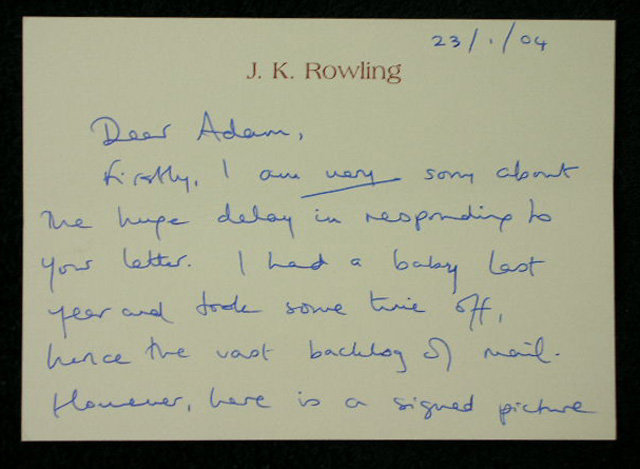 23/1/04
J. K. Rowling
Dear Adam,
Firstly, I am very sorry about
the huge delay in responding to
your letter. I had a baby last
year and took some time off,
hence the vast backlog of mail.
However, here is a signed picture